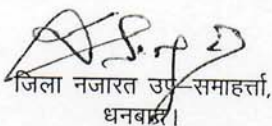 जिला नजारत उप-समाहर्त्ता,
धनबाद।